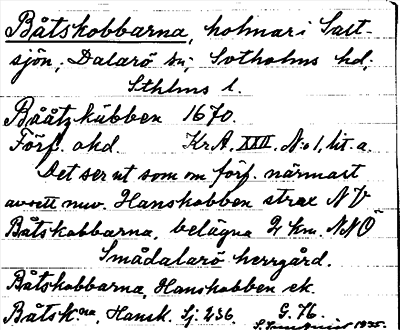 Båtskobbarna, holmar i Salt-
sjön; Dalarö sn; Sotholms hd;
Sthlms l.
Bååtzkübben 1670.
Förf. okd. Kr.A. XXII. N:o 1, lit. a.
Det ser ut som om förf. närmast
avsett nuv. Hanskobben strax NV
Båtskobbarna, belägna 2 km. NNÖ
Smådalarö herrgård.
Båtskobbarna, Hanskobben ek.
Båtsk:na, Hansk. Sj. 236. G. 76.
1935.